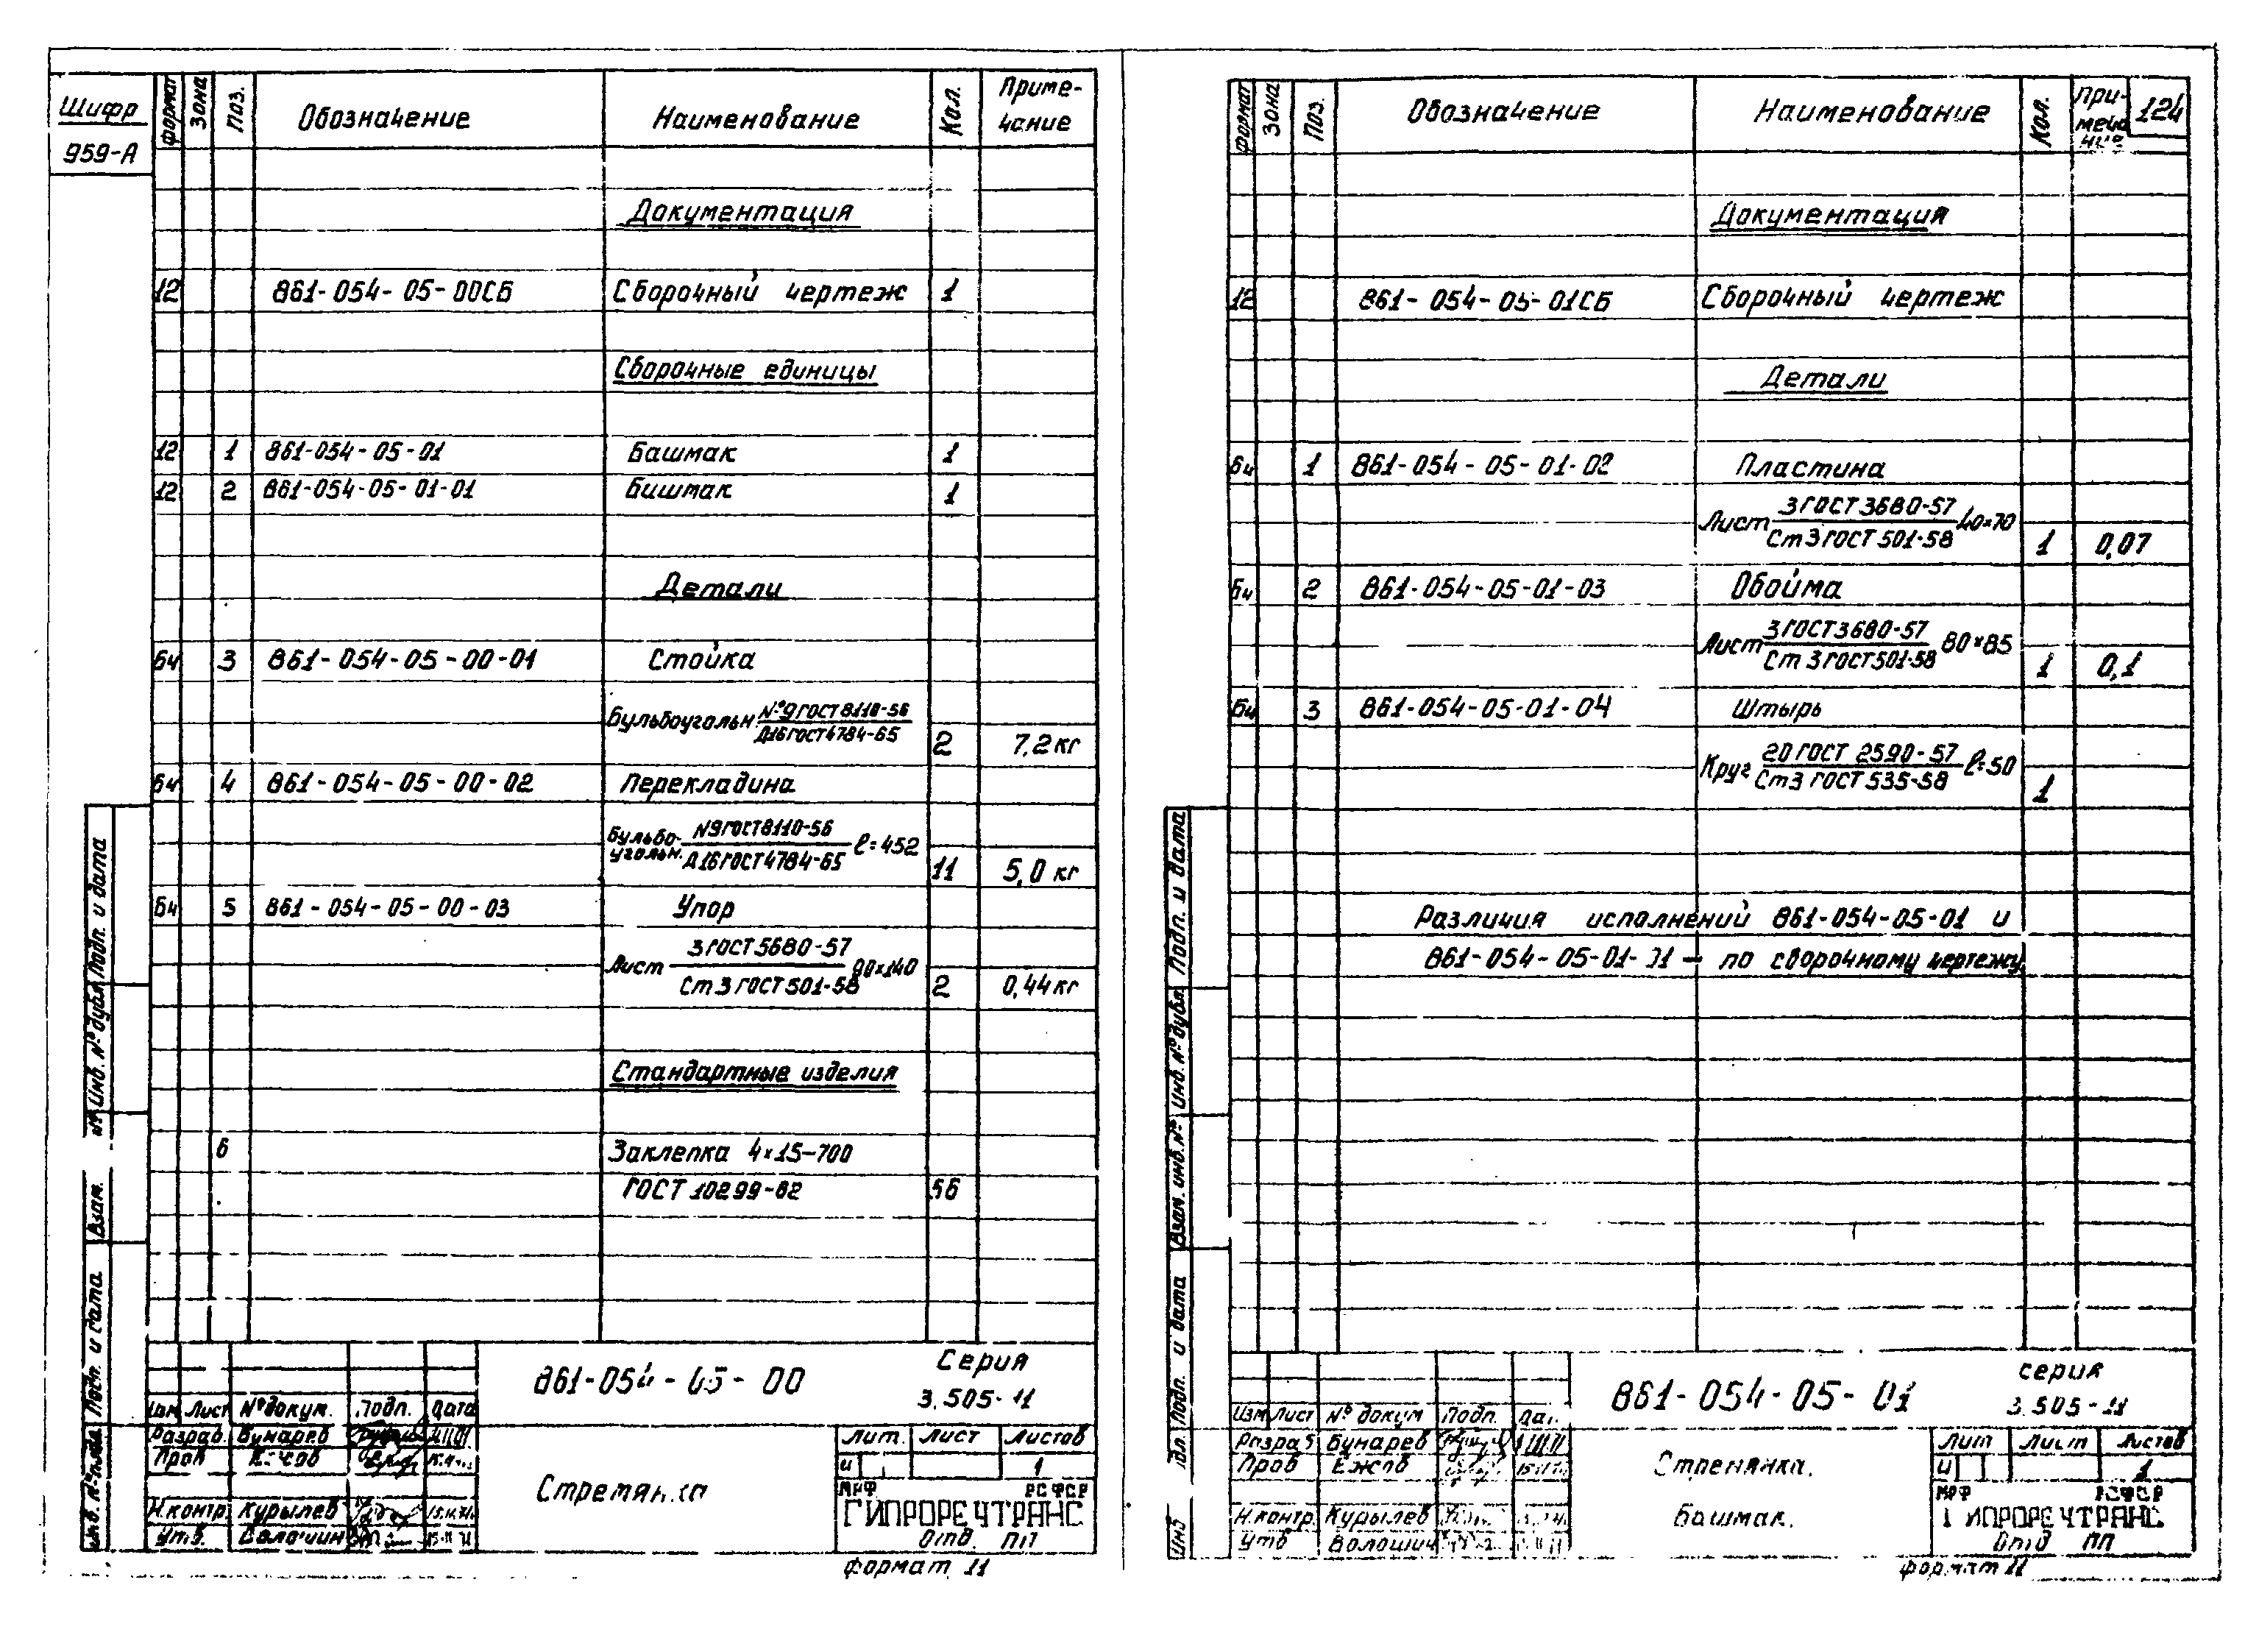 Шифр
959-А
формат Зона Поз. Обозначение Наименование Кол. Приме-
чание
Документация
12 861-054-05-00СБ Сборочный чертеж 1
Сборочные единицы
12 1 861-054-05-01 Башмак 1
12 2 861-054-05-01-01 Бишмак 1
Детали
бч 3 861-054-05-00-01 Стойка
Бульбоугольн №9 ГОСТ 8110-56
Д16 ГОСТ 4784-65 2 7,2 кг
бч 4 861-054-05-00-02 Перекладина
Бульбо-
угольн. N9 ГОСТ 8110-56
Д16 ГОСТ 4784-65 ℓ=452 11 5,0 кг
бч 5 861-054-05-00-03 Упор
Лист 3 ГОСТ 5680-57
Ст 3 ГОСТ 501-58 90×140 2 0,44 кг
Стандартные изделия
6 Заклепка 4×15-700
ГОСТ 10299-62 56
861-054-05-00
Серия
3.505-11
Изм Лист №докум. Подп. Дата
Разраб. Бунарев
Пров
Н.контр. Курылев
Утв. Волошин
Стремянка
Лит. Лист Листов
и 1
МРФ РСФСР
ГИПРОРЕЧТРАНС
Отд. ПП
Формат 11
Инв. № подл. Подп. и дата Взам. инв. № Инв. № дубл. Подп. и дата
формат Зона Поз. Обозначение Наименование Кол. При-
меча
ние
124
Документация
12 861-054-05-01СБ Сборочный чертеж
Детали
бч 1 861-054-05-01-02 Пластина
Лист 3 ГОСТ 3680-57
Ст 3 ГОСТ 501-58 40×70 1 0,07
бч 2 861-054-05-01-03 Обойма
Лист 3 ГОСТ 3680-57
Ст 3 ГОСТ 501-58 80×85 1 0,1
бч 3 861-054-05-01-04 Штырь
Круг 20 ГОСТ 2590-57
Ст 3 ГОСТ 535-58 ℓ=50 1
Различия исполнений 861-054-05-01 и
861-054-05-01-01 – по сборочному чертежу
861-054-05-01
серия
3.505-11
Изм Лист № докум Подп. Дат.
Разраб Бунарев
Пров Ежов
Н.контр. Курылев
Утв Волошин
Стремянка.
Башмак.
Лит Лист Листов
и 1
МРФ РСФСР
ГИПРОРЕЧТРАНС
Отд ПП
Формат 11
Инв Подл. Подп. и дата Взам. инв. № Инв. № дубл. Подп. и дата